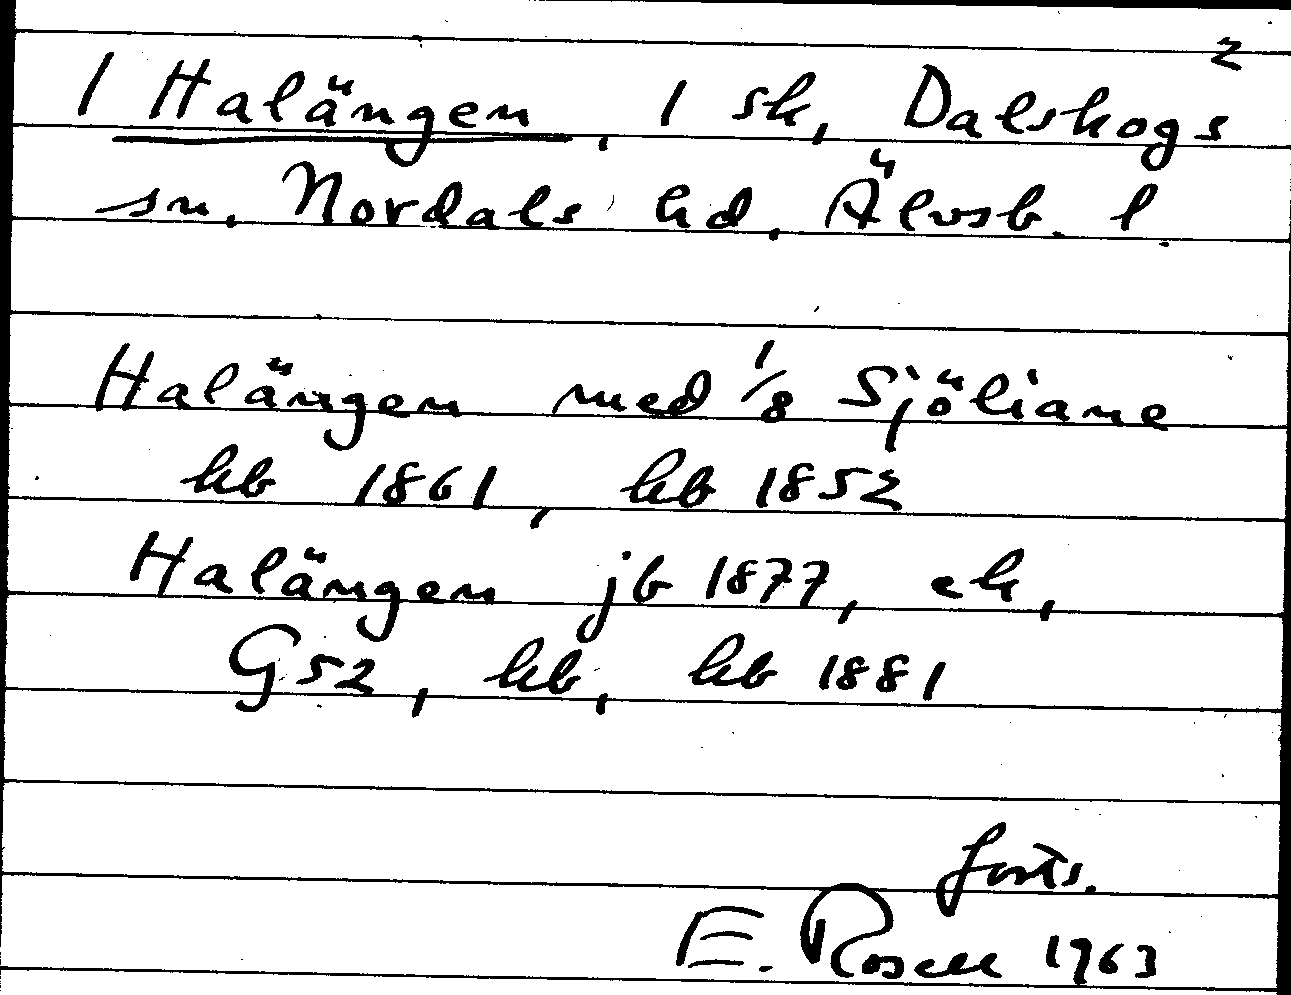 2
1 Halängen, 1 sk, Dalskogs
sn, Nordals hd, Älvsb. l.
Halängen med 1/8 Sjöliane
hb 1861, hb 1852
Halängen jb 1877, ek,
G52, hb, hb 1881
forts.
E. Rosell 1963